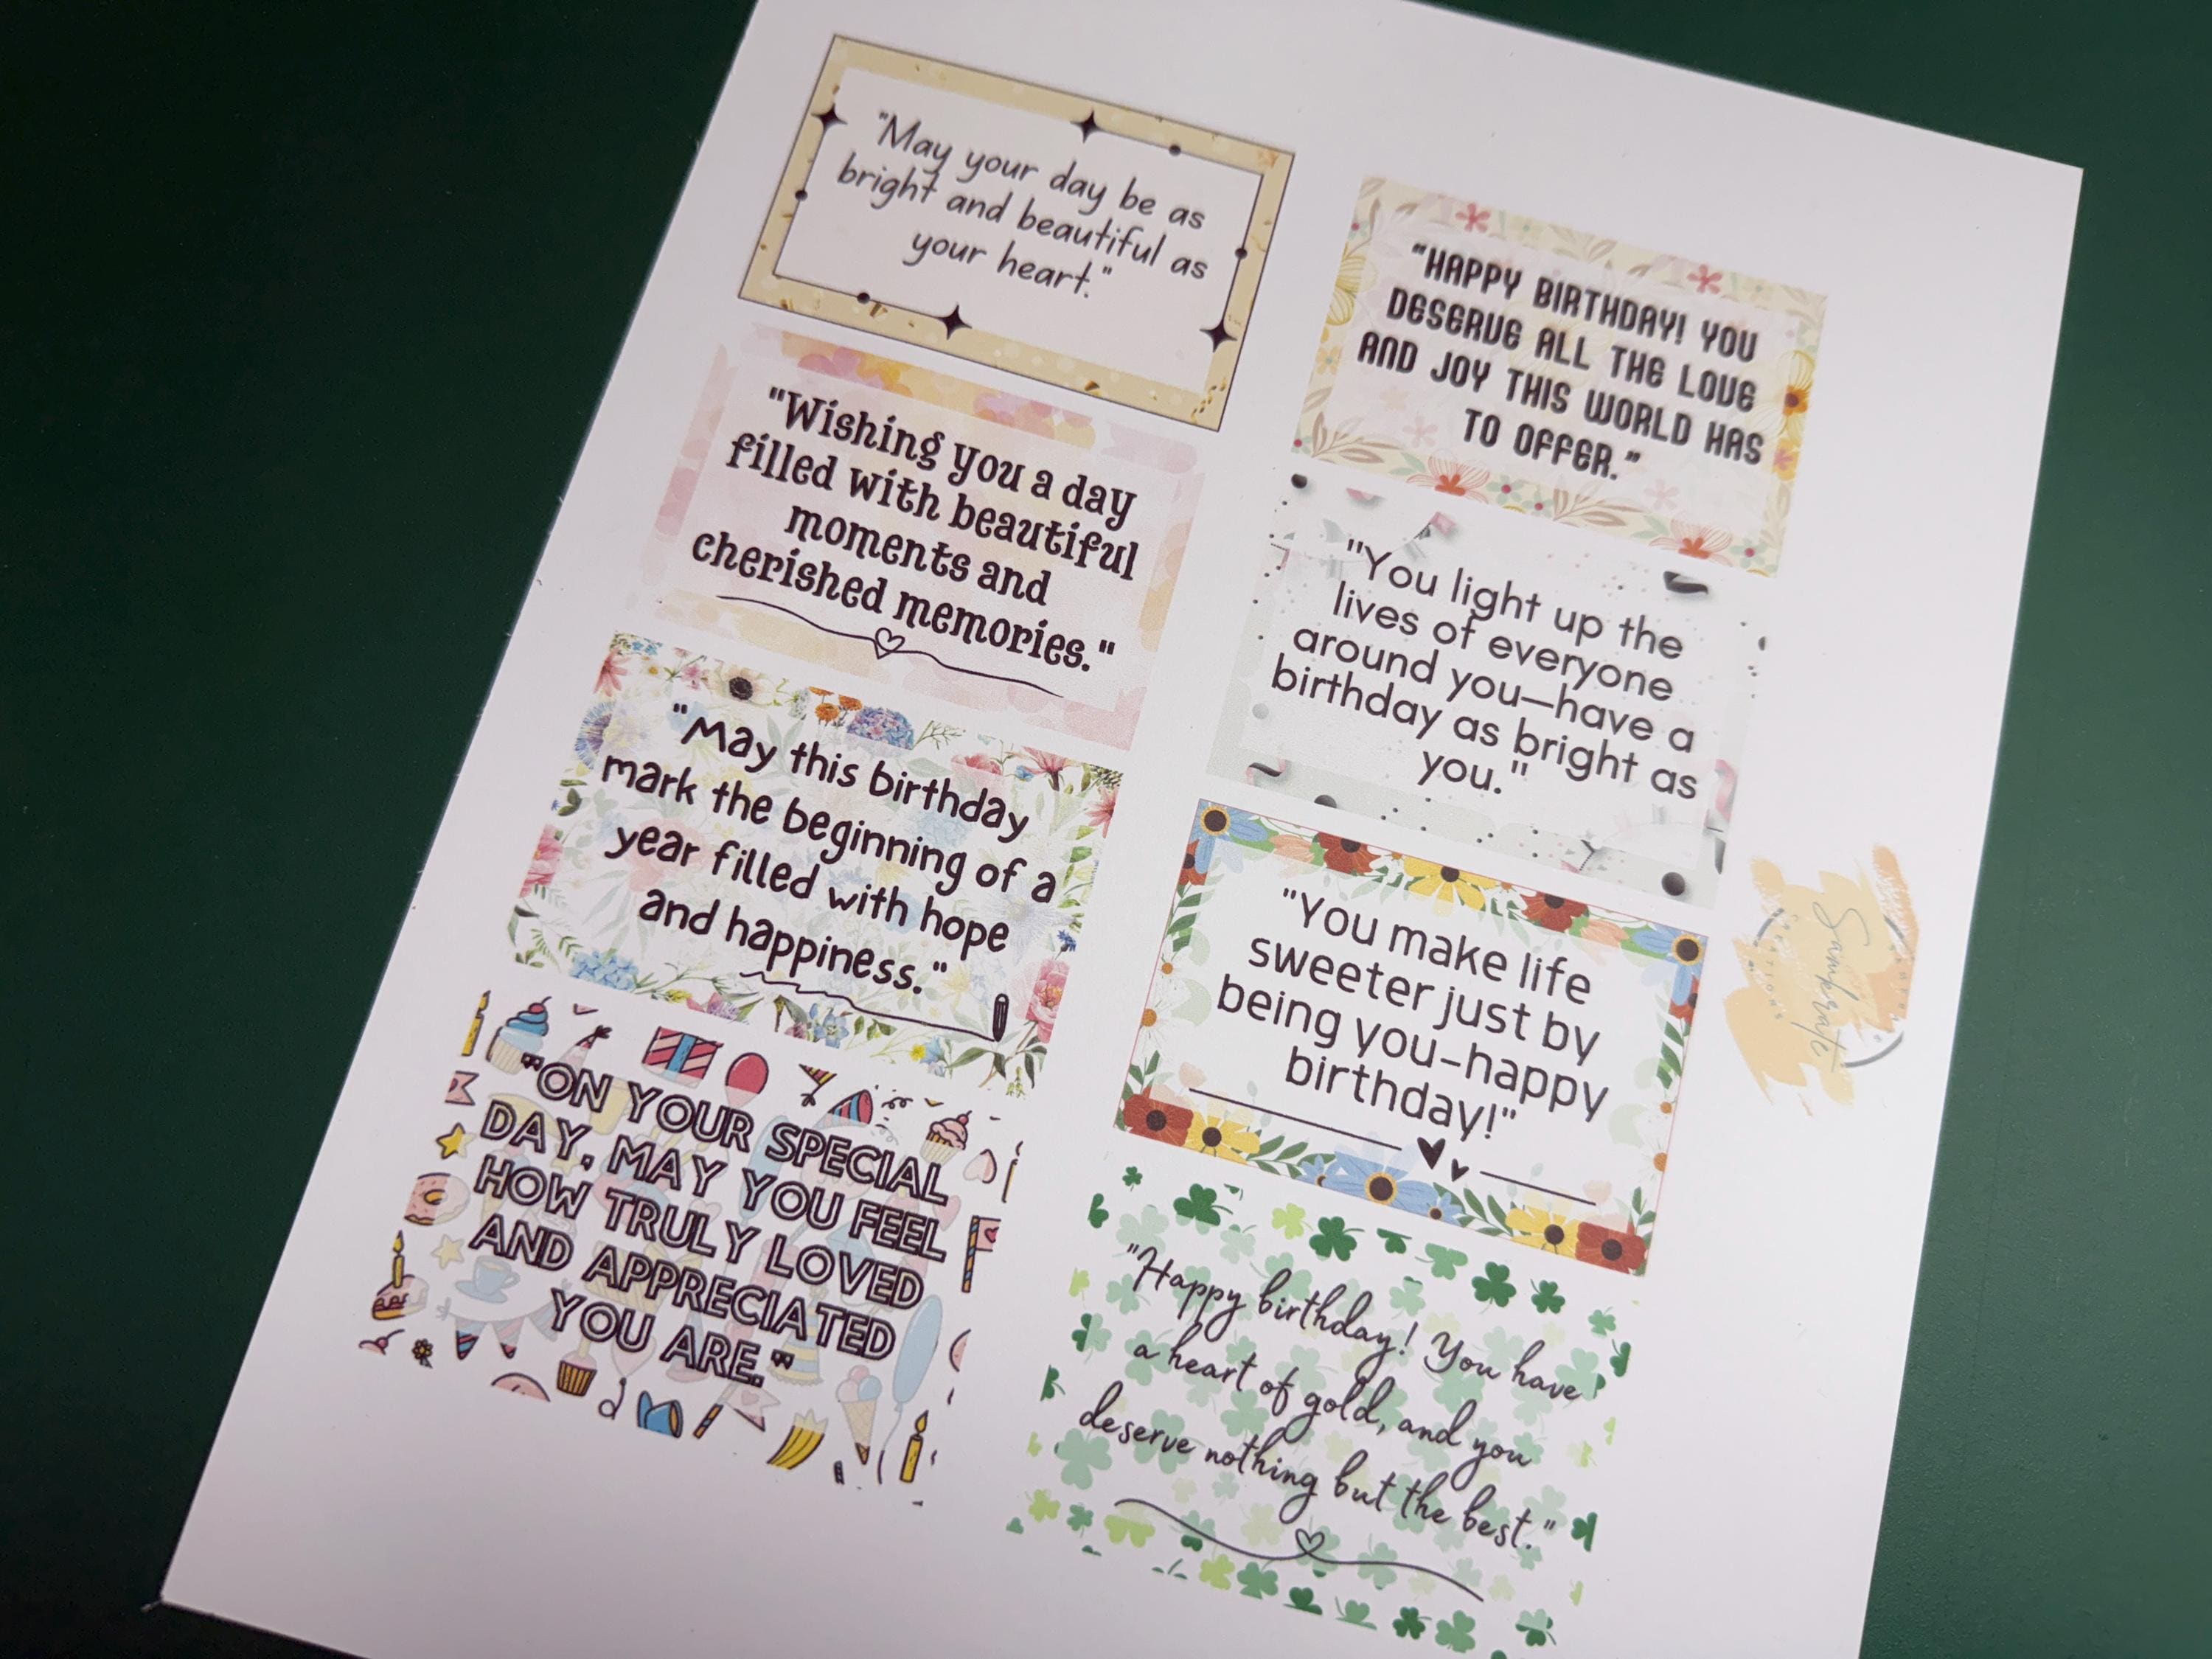 "May your day be as
bright and beautiful as
your heart."
"Wishing you a day
filled with beautiful
moments and
cherished memories."
"May this birthday
mark the beginning of a
year filled with hope
and happiness."
"ON YOUR SPECIAL
DAY, MAY YOU FEEL
HOW TRULY LOVED
AND APPRECIATED
YOU ARE."
"HAPPY BIRTHDAY! YOU
DESERVE ALL THE LOVE
AND JOY THIS WORLD HAS
TO OFFER."
"You light up the
lives of everyone
around you—have a
birthday as bright as
you."
"You make life
sweeter just by
being you-happy
birthday!"
"Happy birthday! You have
a heart of gold, and you
deserve nothing but the best."